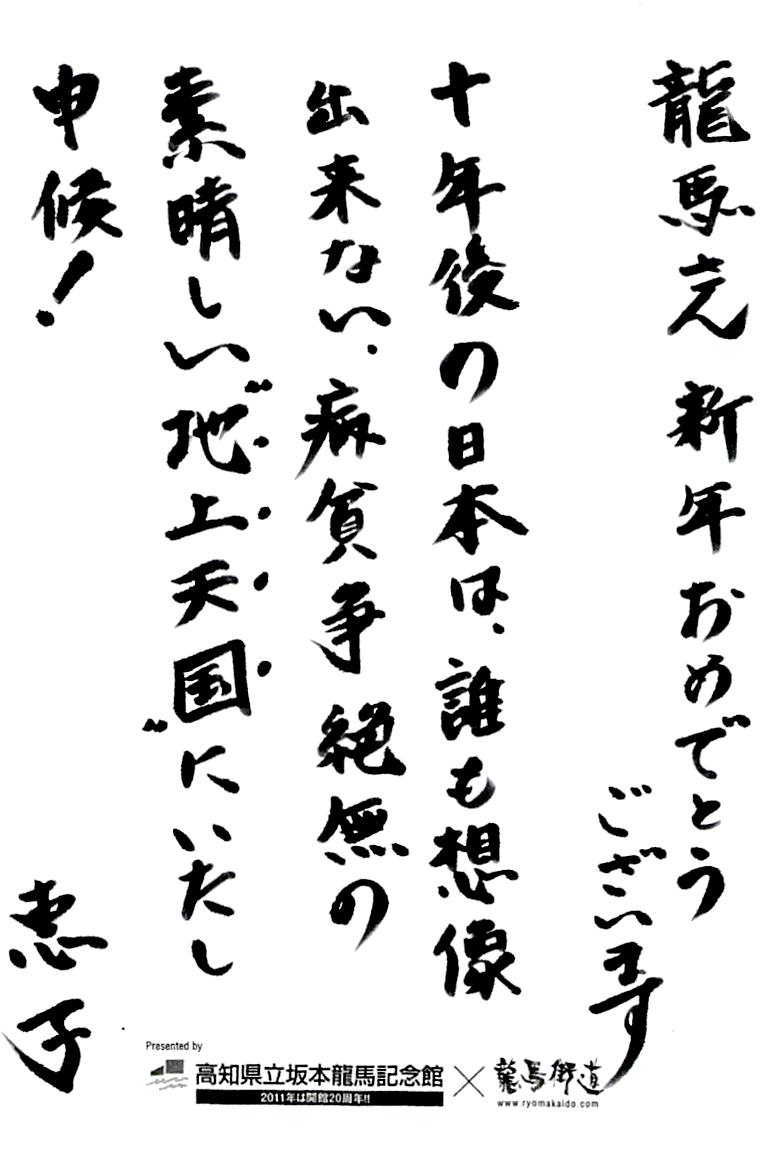 龍馬さん 新年おめでとう
ございます
十年後の日本は、誰も想像
出来ない、病貧争絶無の
素晴しい〝地上天国〟にいたし
申候!
恵子
Presented by
高知県立坂本龍馬記念館
2011年は開館20周年!!
×
龍馬街道
www.ryomakaido.com